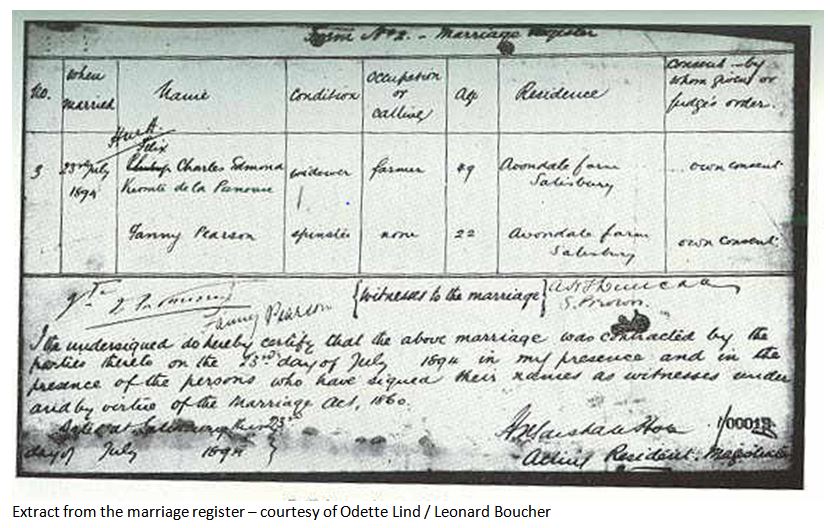 Form No 2. - Marriage Register
No.
when married
Name
Condition
occupation or calling
Age
Residence
consent - by whom given or judge's order.
3
23rd July 1894
Felix
Charles Edmond
Vicomte de la Panouse
widower
farmer
49
Avondale farm
Salisbury
own consent
Fanny Pearson
spinster
none
22
Avondale farm
Salisbury
own consent
Fanny Pearson
{witnesses to the marriage}
S. Brown.
I the undersigned do hereby certify that the above marriage was contracted by the
parties thereto on the 23rd day of July 1894 in my presence and in the
presence of the persons who have signed their names as witnesses under
and by virtue of the Marriage Act, 1860.
Dated at Salisbury this 23rd
day of July 1894 }
00013
Acting Resident Magistrate
Extract from the marriage register – courtesy of Odette Lind / Leonard Boucher